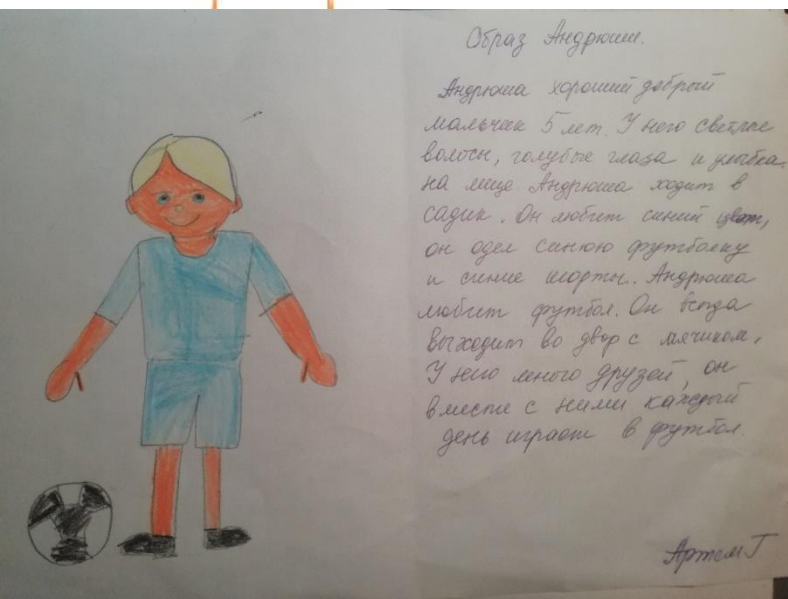 Образ Андрюши.
Андрюша хороший добрый
мальчик 5 лет. У него светлые
волосы, голубые глаза и улыбка
на лице. Андрюша ходит в
садик. Он любит синий цвет,
он одел синюю футболку
и синие шорты. Андрюша
любит футбол. Он всегда
выходит во двор с мячиком.
У него много друзей, он
вместе с ними каждый
день играет в футбол.
Артем Г